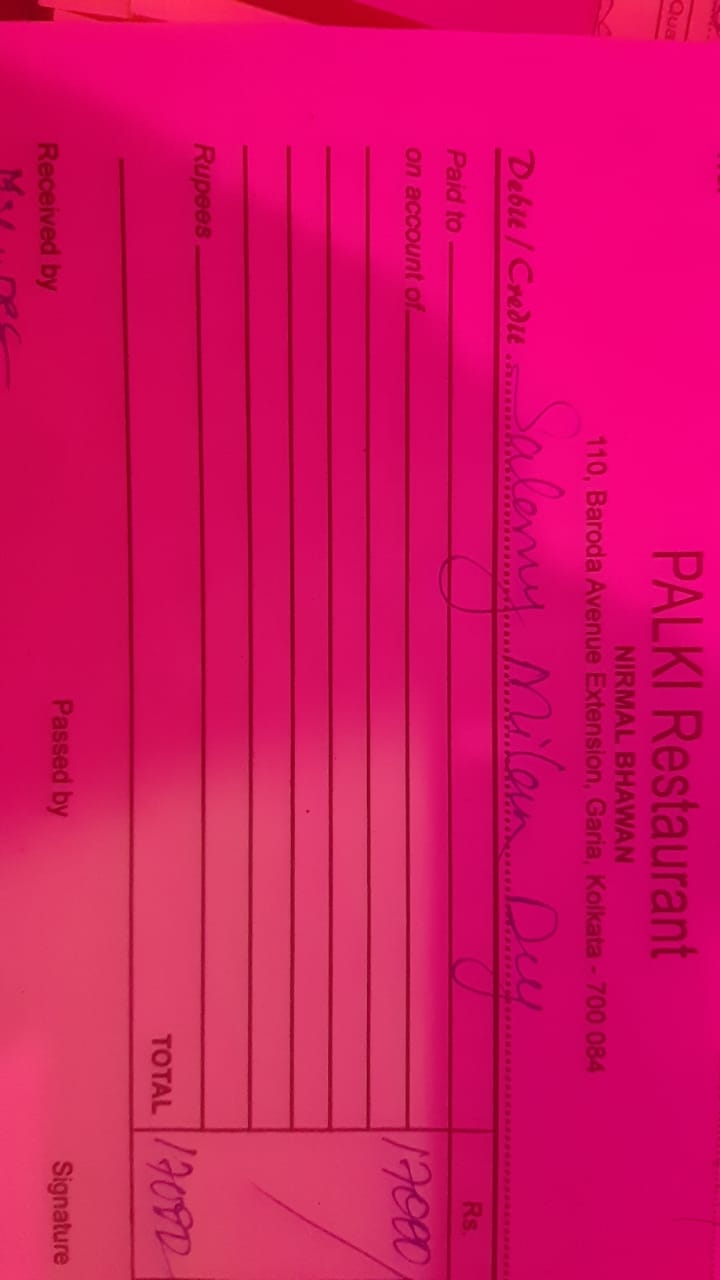 PALKI Restaurant
NIRMAL BHAWAN
110, Baroda Avenue Extension, Garia, Kolkata - 700 084
Debit / Credit Salemy Milan Dey
Rs.
Paid to
on account of 17000/
Rupees
TOTAL
Received by
Passed by
Signature